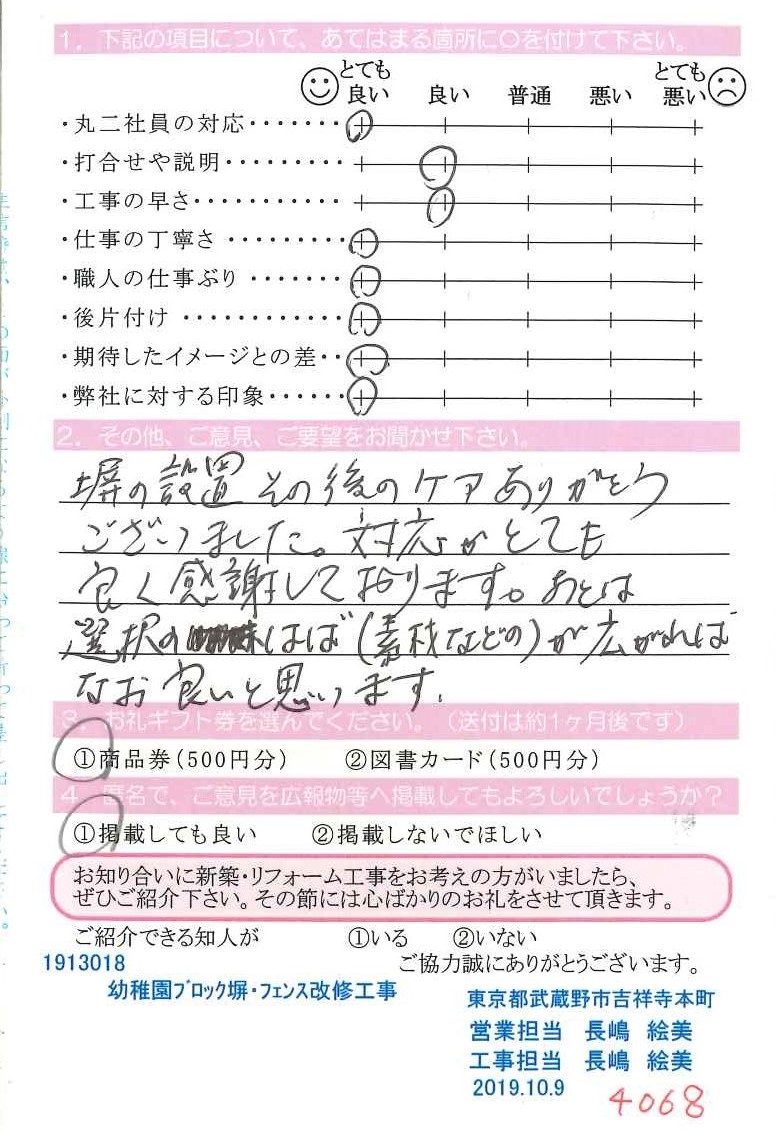 1. 下記の項目について、あてはまる箇所に○を付けて下さい。
とても良い 良い 普通 悪い とても悪い
・丸二社員の対応・・・・・・・
・打合せや説明・・・・・・・・・
・工事の早さ・・・・・・・・・・・
・仕事の丁寧さ・・・・・・・・・
・職人の仕事ぶり・・・・・・・
・後片付け・・・・・・・・・・・・
・期待したイメージとの差・・
・弊社に対する印象・・・・・・
2. その他、ご意見、ご要望をお聞かせ下さい。
塀の設置 その後のケア ありがとう
ございました。対応がとても
良く感謝しております。あとは
選択のはば(素材などの)が広がれば
なお良いと思います。
3. お礼ギフト券を選んでください。(送付は約1ヶ月後です)
①商品券(500円分) ②図書カード(500円分)
4. 匿名で、ご意見を広報物等へ掲載してもよろしいでしょうか?
①掲載しても良い ②掲載しないでほしい
お知り合いに新築・リフォーム工事をお考えの方がいましたら、
ぜひご紹介下さい。その節には心ばかりのお礼をさせて頂きます。
ご紹介できる知人が ①いる ②いない
1913018 ご協力誠にありがとうございます。
幼稚園ブロック塀・フェンス改修工事
東京都武蔵野市吉祥寺本町
営業担当 長嶋 絵美
工事担当 長嶋 絵美
2019.10.9
4068